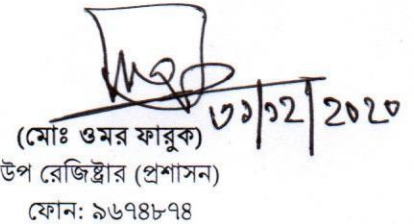 ৩১/১২/২০২০
(মোঃ ওমর ফারুক)
উপ রেজিষ্ট্রার (প্রশাসন)
ফোন: ৯৬৭৪৮৭৪